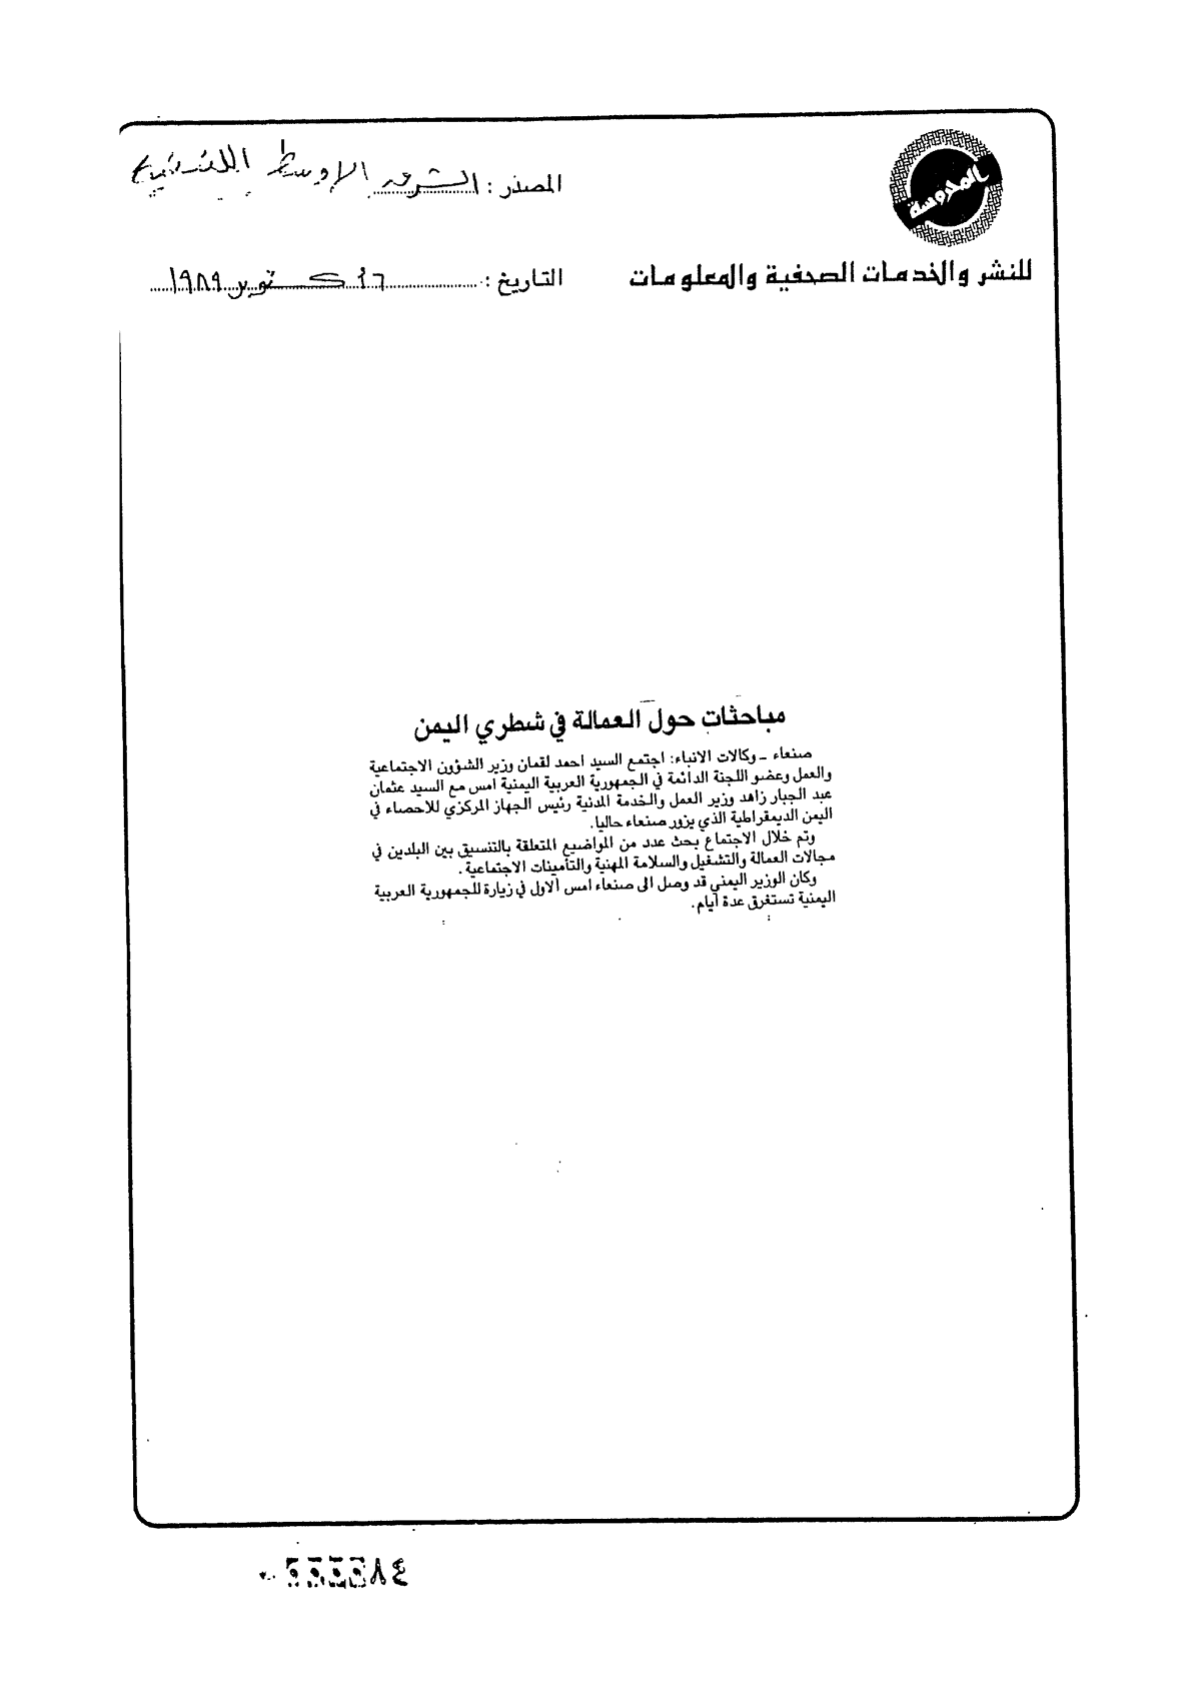 المحروسة
للنشر والخدمات الصحفية والمعلومات
المصدر : الشرق الاوسط اللندنية
التاريخ : ١٦ اكتوبر ١٩٨٩
مباحثات حول العمالة في شطري اليمن
صنعاء ـ وكالات الانباء: اجتمع السيد احمد لقمان وزير الشؤون الاجتماعية
والعمل وعضو اللجنة الدائمة في الجمهورية العربية اليمنية امس مع السيد عثمان
عبد الجبار زاهد وزير العمل والخدمة المدنية رئيس الجهاز المركزي للاحصاء في
اليمن الديمقراطية الذي يزور صنعاء حاليا.
وتم خلال الاجتماع بحث عدد من المواضيع المتعلقة بالتنسيق بين البلدين في
مجالات العمالة والتشغيل والسلامة المهنية والتأمينات الاجتماعية.
وكان الوزير اليمني قد وصل الى صنعاء امس الاول في زيارة للجمهورية العربية
اليمنية تستغرق عدة أيام.